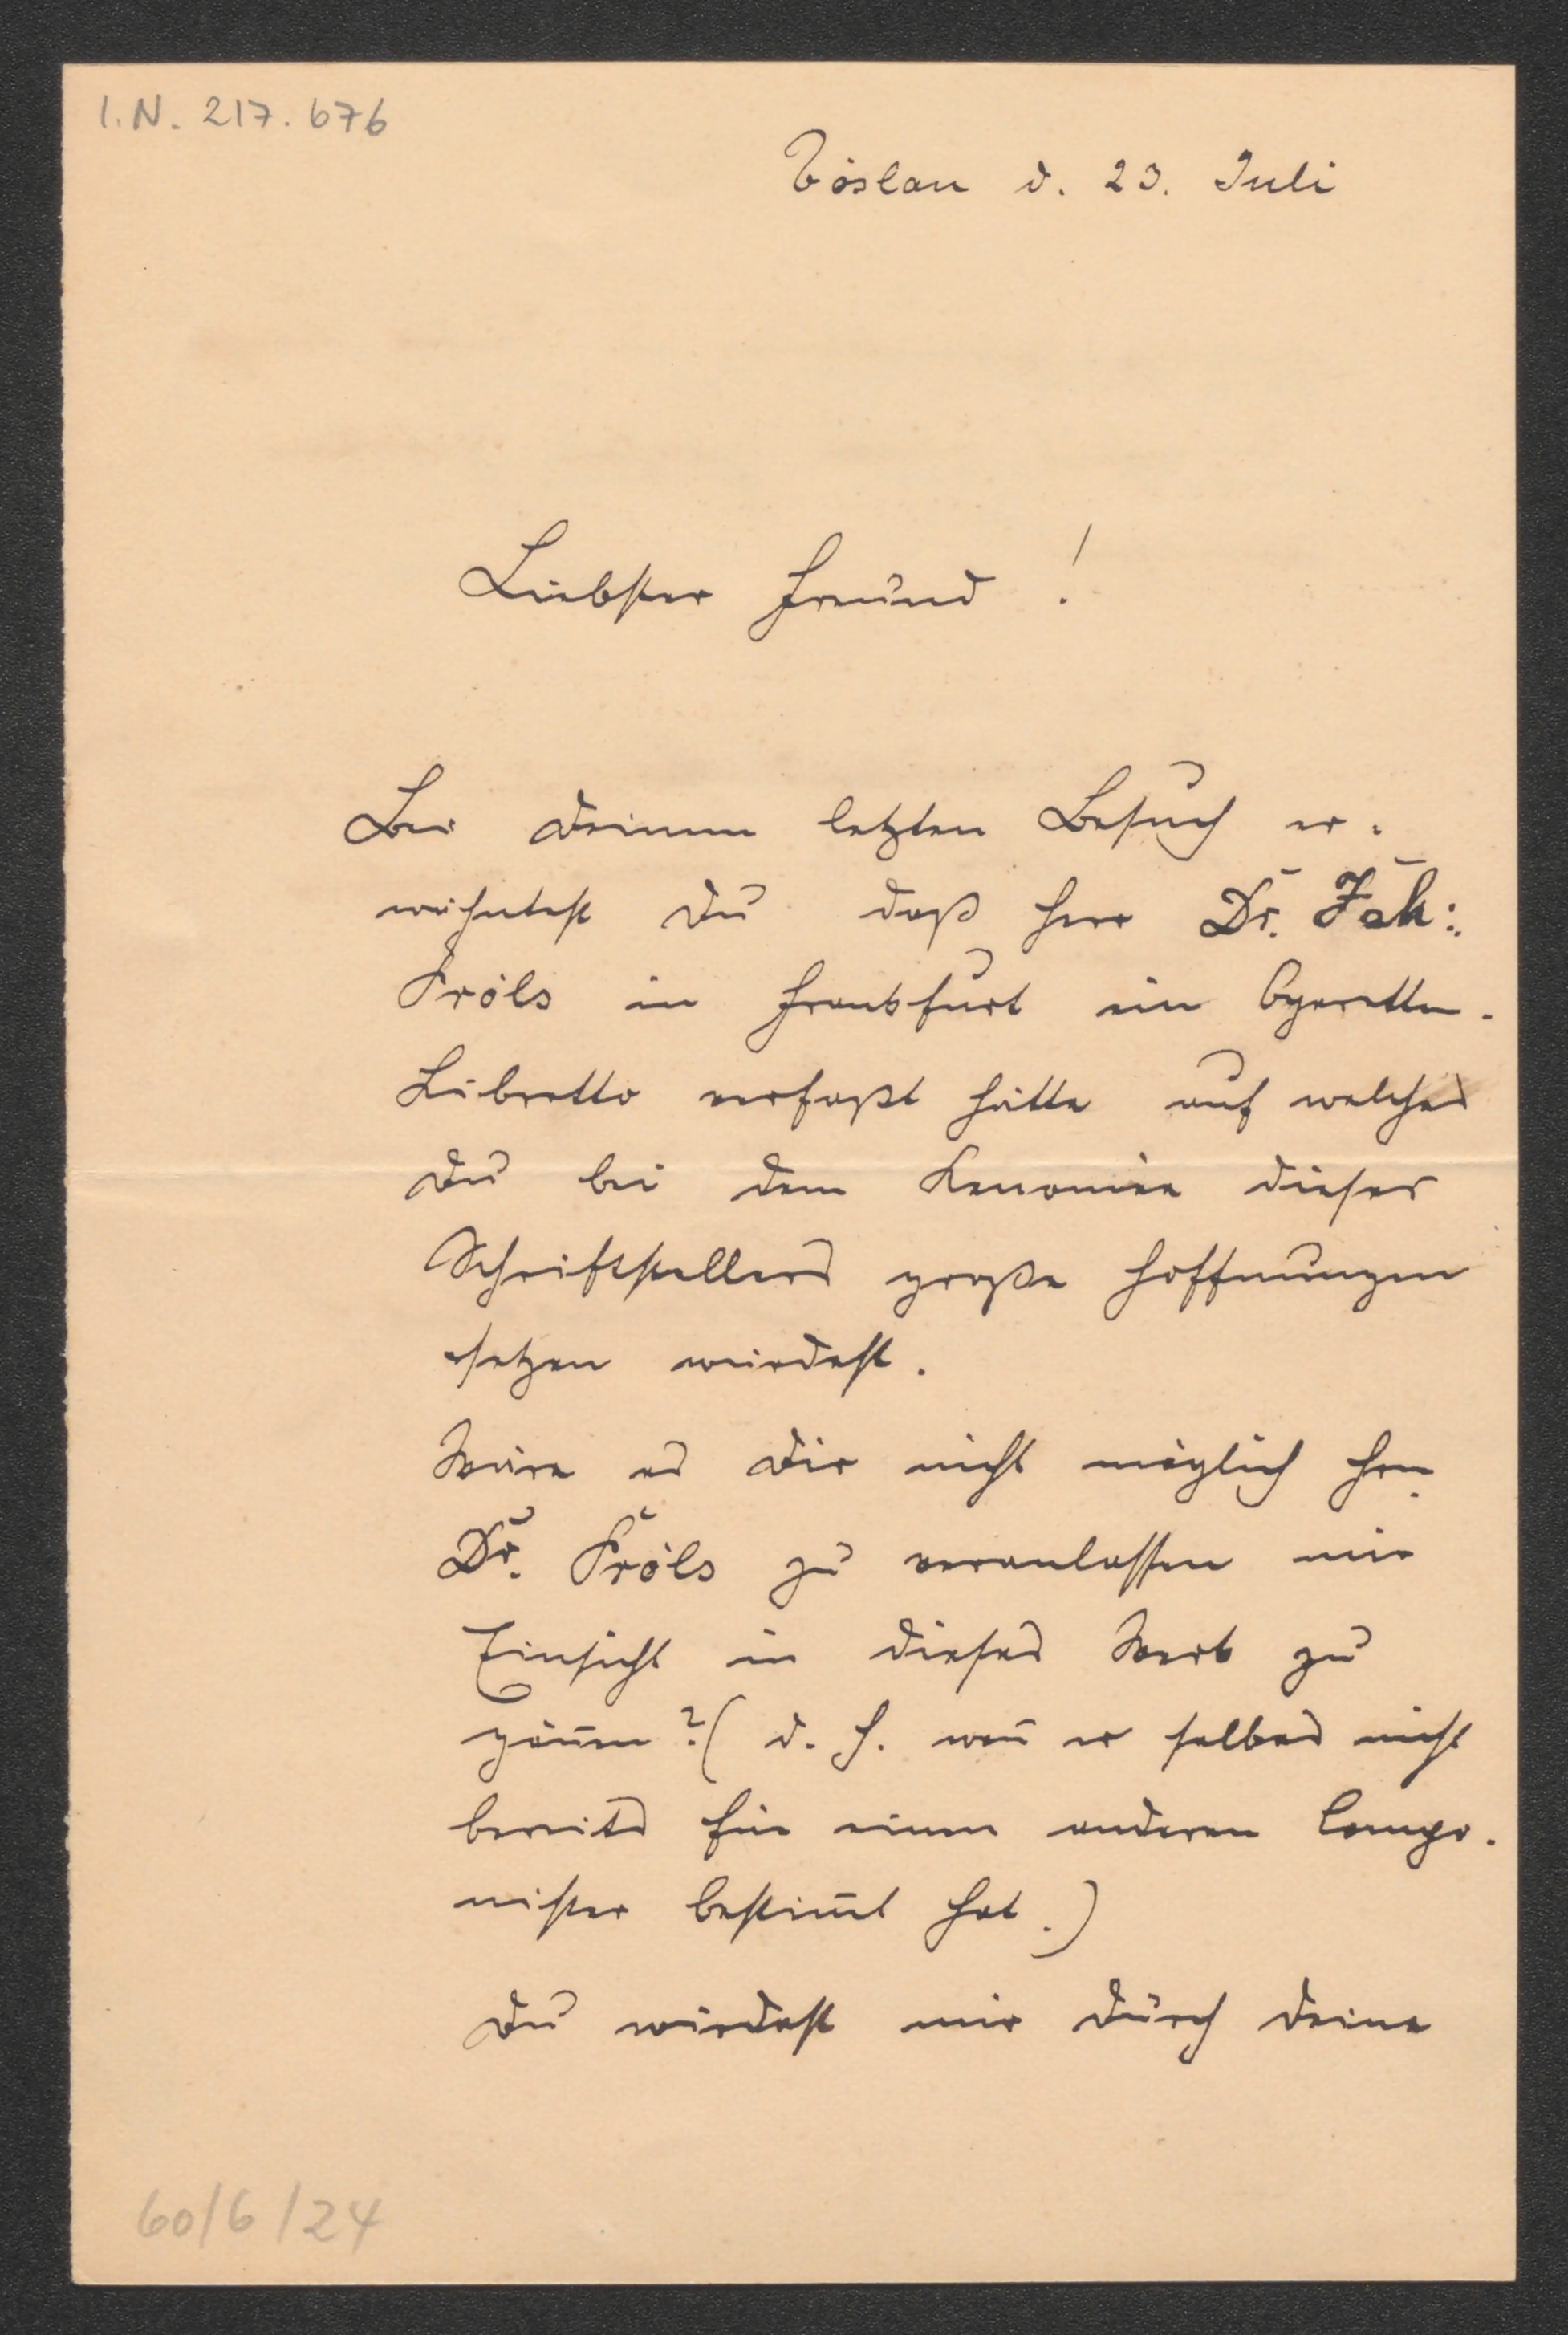 I.N. 217.676
Vöslau d. 23. Juli
Liebster Freund!
Bei Deinem letzten Besuch er-
wähntest Du daß Herr Dr. Jak:
Pröls in Frankfurt ein Operetten-
Libretto verfaßt hätte auf welches
Du bei dem Renomée dieses
Schriftstellers große Hoffnungen
setzen würdest.
Wäre es Dir nicht möglich Hrn
Dr. Pröls zu veranlassen mir
Einsicht in dieses Werk zu
gönnen? (d. h. wenn er selbes nicht
bereits für einen anderen Compo-
nisten bestimmt hat.)
Du würdest mir durch Deine
60/6/24